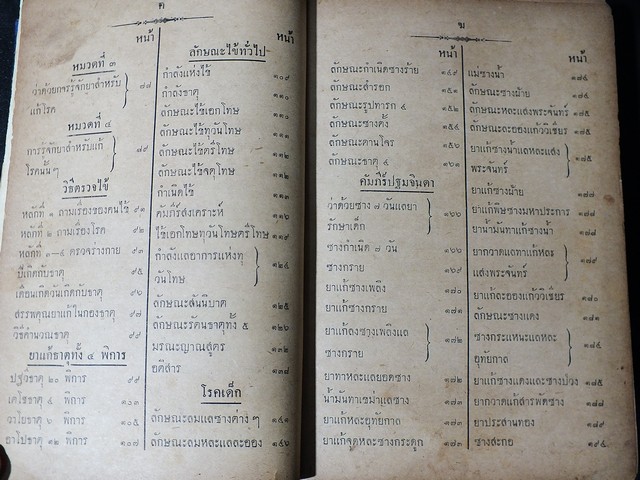 ค
หน้า
หมวดที่ ๓
ว่าด้วยการรู้จักยาสำหรับ
แก้โรค ๘๘
หมวดที่ ๔
การรู้จักยาสำหรับแก้
โรคนั้น ๆ ๘๙
วิธีตรวจไข้
หลักที่ ๑ ถามเรื่องของคนไข้ ๙๑
หลักที่ ๒ ถามเรื่องโรค ๙๒
หลักที่ ๓–๔ ตรวจร่างกาย ๙๓
ปีเกิดกับธาตุ ๙๕
เดือนเกิดวันเกิดกับธาตุ ๙๖
สรรพคุณยาแก้ในกองธาตุ ๙๘
วิธีคำนวณธาตุ ๙๙
ยาแก้ธาตุทั้ง ๔ พิการ
ปฐวีธาตุ ๒๐ พิการ ๙๙
เตโชธาตุ ๔ พิการ ๑๐๓
วาโยธาตุ ๖ พิการ ๑๐๕
อาโปธาตุ ๑๒ พิการ ๑๐๘
ลักษณะไข้ทั่วไป
หน้า
กำลังแห่งไข้ ๑๐๙
กำลังธาตุ ๑๑๐
ลักษณะไข้เอกโทษ ๑๑๐
ลักษณะไข้ทุวันโทษ ๑๑๑
ลักษณะไข้ตรีโทษ ๑๑๒
ลักษณะไข้จตุโทษ ๑๑๒
กำเนิดไข้ ๑๑๓
คัมภีร์สงเคราะห์ ๑๑๖
ไข้เอกโทษทุวันโทษตรีโทษ ๑๑๙
กำลังแลอาการแห่งทุ
วันโทษ ๑๒๔
ลักษณะสันนิบาต ๑๒๕
ลักษณะรัตนธาตุทั้ง ๕ ๑๒๖
มรณะญาณสูตร ๑๓๒
อติสาร ๑๓๘
โรคเด็ก
ลักษณะลมแลซางต่าง ๆ ๑๔๑
ลักษณะลมหละแลละออง ๑๔๖
ฆ
หน้า
ลักษณะกำเนิดซางร้าย ๑๔๙
ลักษณะสำรอก ๑๕๑
ลักษณะรูปทารก ๔ ๑๕๒
ลักษณะซางตั้ง ๑๕๔
ลักษณะตานโจร ๑๕๖
ลักษณะธาตุ ๔ ๑๖๑
คัมภีร์ปฐมจินดา
ว่าด้วยซาง ๗ วันแลยา
รักษาเด็ก ๑๖๖
ซางกำเนิด ๗ วัน ๑๖๖
ซางกราย ๑๖๙
ยาแก้ซางเพลิง ๑๗๐
ยาแก้ซางกราย ๑๗๑
ยาแก้ลงซางเพลิงแล
ซางกราย ๑๗๒
ยาทาหละแลยอดซาง ๑๗๒
น้ำมันทาเขม่าแลซาง ๑๗๓
ยาแก้หละอุทัยกาล ๑๗๓
ยาแก้จุดหละซางกระดูก ๑๗๓
หน้า
แม่ซางน้ำ ๑๗๔
ลักษณะซางฝ้าย ๑๗๔
ลักษณะหละแสงพระจันทร์ ๑๗๕
ลักษณะละอองแก้ววิเชียร ๑๗๕
ยาแก้ซางน้ำแลหละแสง
พระจันทร์ ๑๗๕
ยาแก้ซางฝ้าย ๑๗๗
ยาแก้พิษซางมหาประการ ๑๗๘
ยาน้ำมันทาแก้ซางน้ำ ๑๗๘
ยากวาดแลทาแก้หละ
แสงพระจันทร์ ๑๗๙
ยาแก้ละอองแก้ววิเชียร ๑๘๐
ลักษณะซางแดง ๑๘๑
ซางกระแหนะแลหละ
อุทัยกาล ๑๘๔
ยาแก้ซางแดงและซางปวง ๑๘๕
ยากวาดแก้สารพัดซาง ๑๘๗
ยาประสานทอง ๑๘๙
ซางสะกอ ๑๙๔